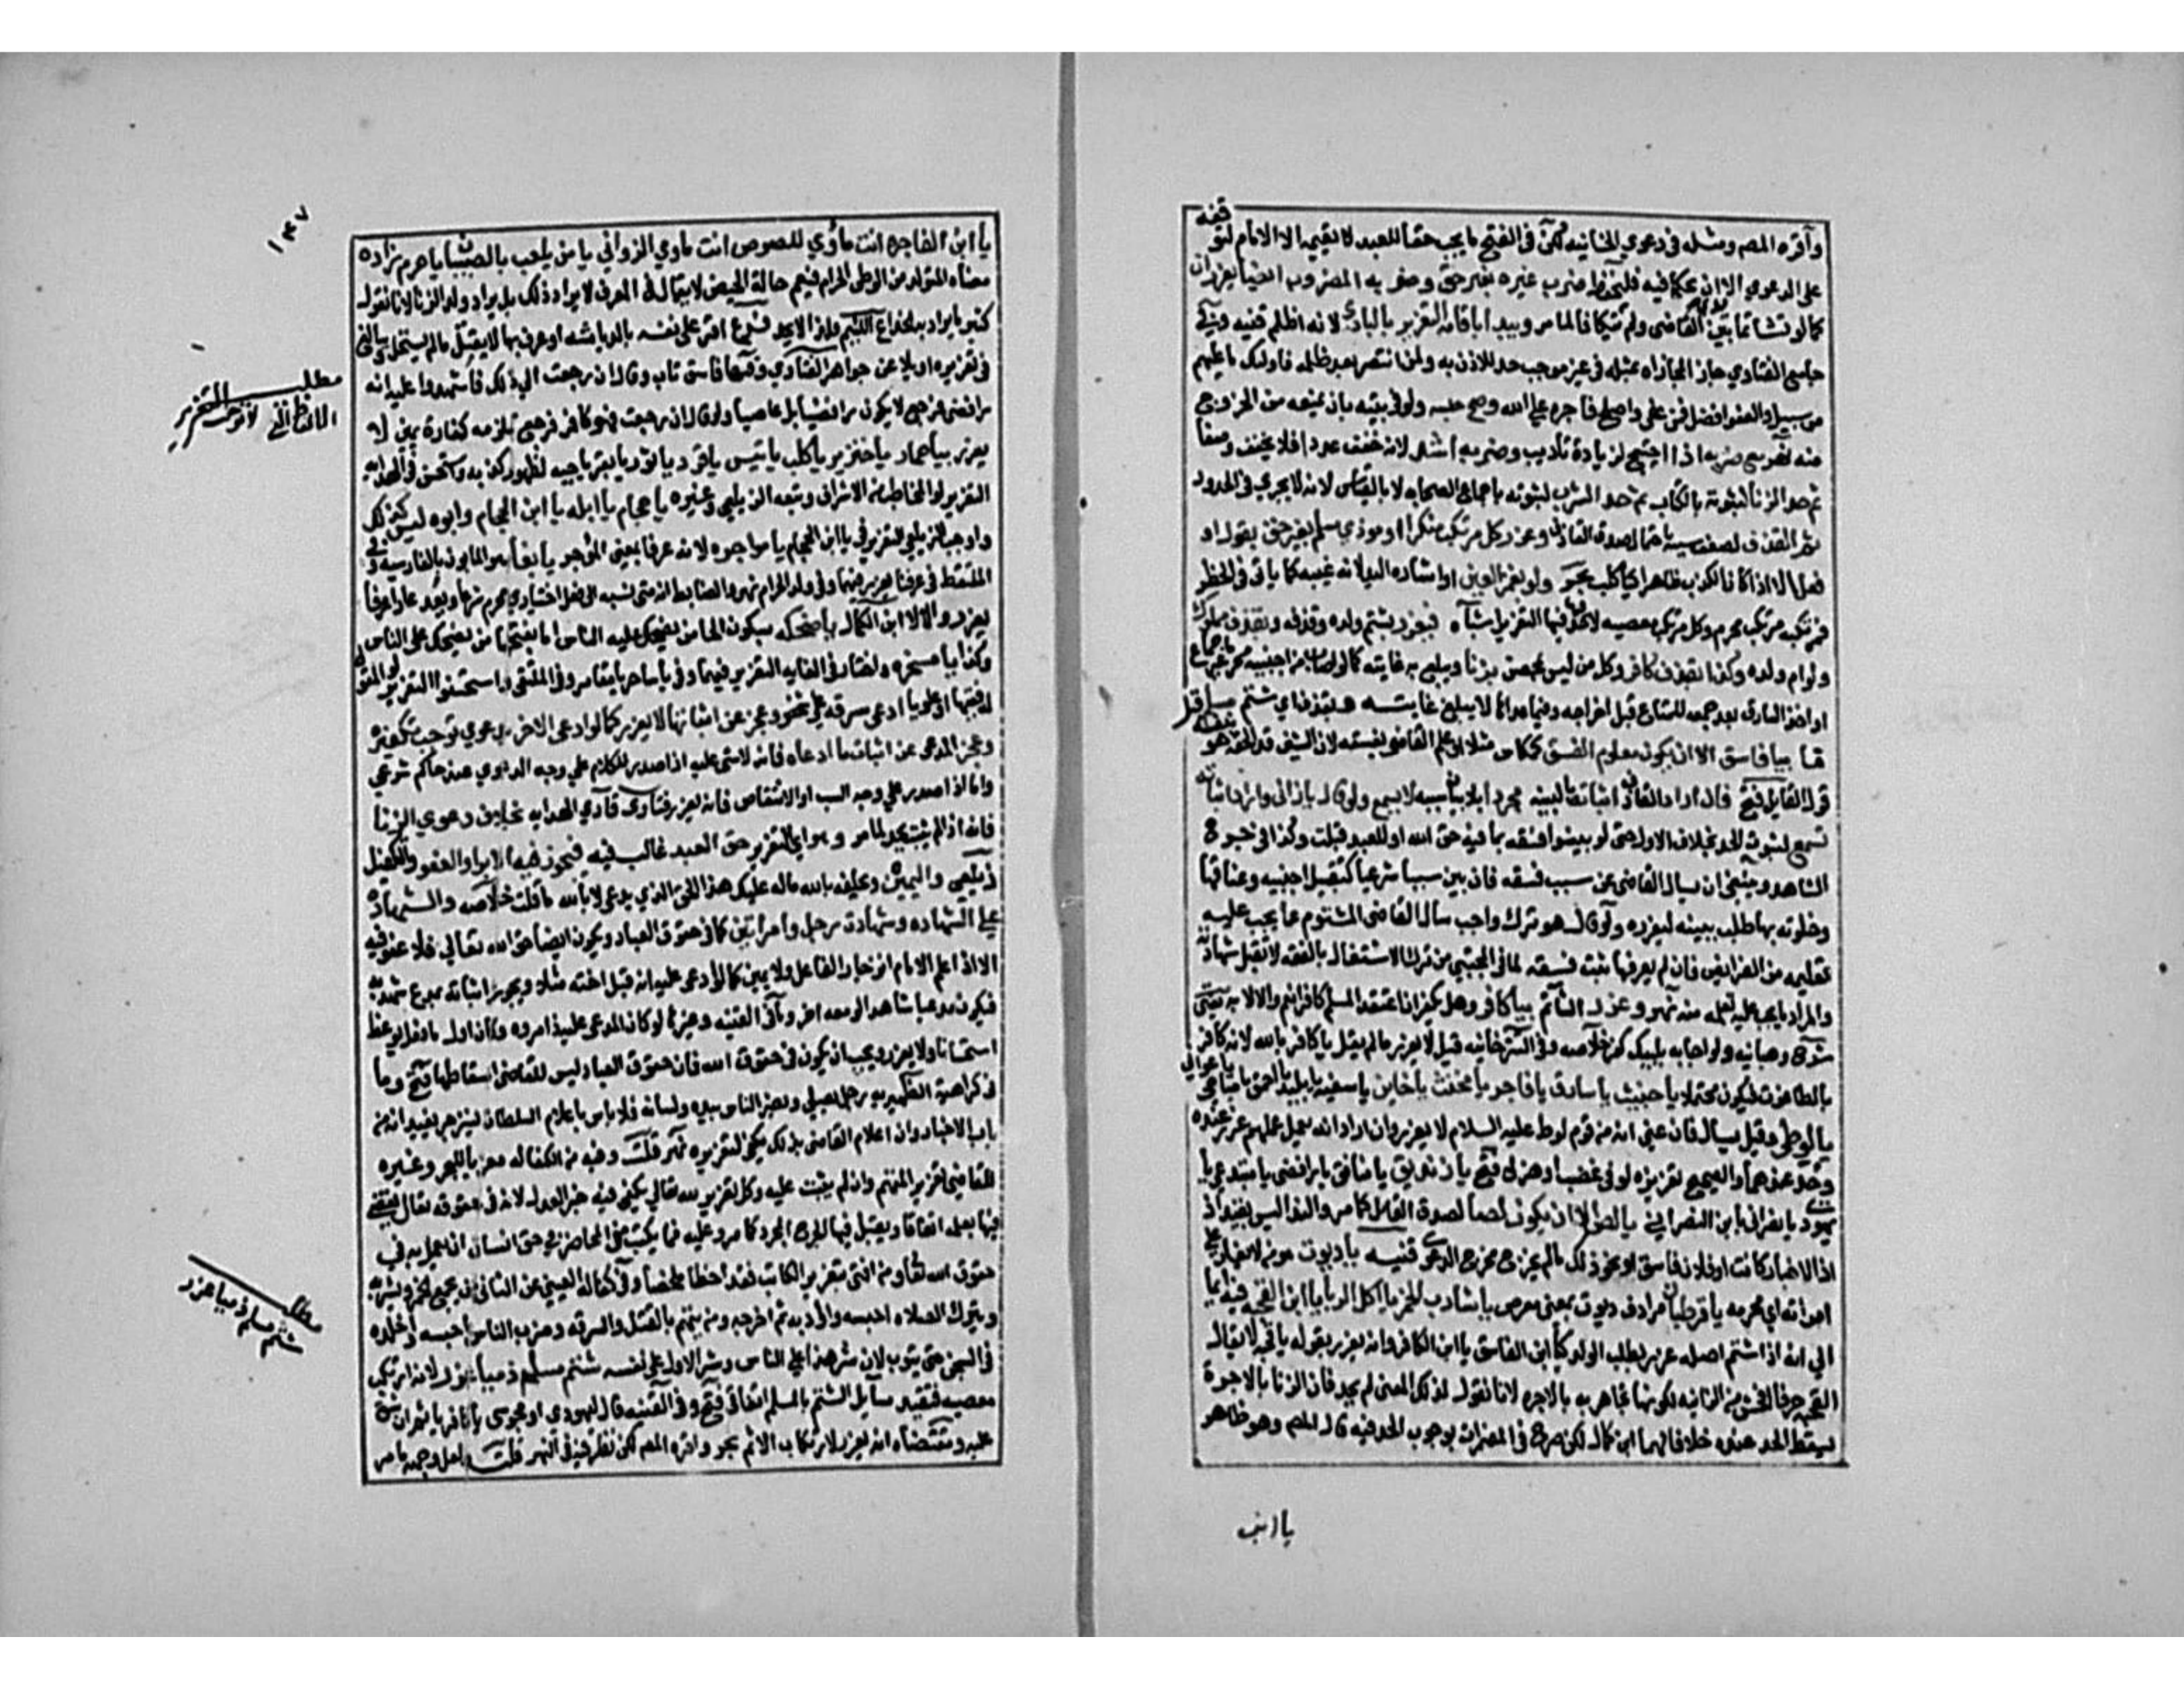 وأقره المصـ ومثله في دعوى الخانيه لكن في الفتح ما يجب حقا للعبد لا يقيمه الا الامام لتوقفه
على الدعوى الا ان يحكما فيه فليحفظ ضرب غيره بغير حق وضربه المضروب ايضا يعزران
كما لو تشاتما بين يدى القاضى ولم يتكافا لما مر ويبدا باقامة التعزير بالبادى لانه اظلم قنيه وفي
جامع الفتاوى جاز المجازاه بمثله في غير موجب حد للاذن به ولمن انتصر بعد ظلمه فاولئك ما عليهم
من سبيل والعفو افضل فمن عفى واصلح فاجره على الله وصح حبسه ولو في بيته بان يمنعه من الخروج
منه نهر مع ضربه اذا احتيج لزيادة تاديب وضربه اشد لانه خفف عددا فلا يخفف وصفا
ثم حد الزنا لثبوته بالكتاب ثم حد الشرب لثبوته باجماع الصحابه لا بالقياس لانه لا يجري في الحدود
ثم القذف لضعف سببه باحتمال صدق القاذف وعزر كل مرتكب منكر او موذي مسلم بغير حق بقول او
فعل الا اذا كان الكذب ظاهرا كيا كلب بحر ولو بغمز العين او اشاره اليد لانه غيبه كما ياتى فى الحظر
فمرتكبه مرتكب محرم وكل مرتكب معصيه لا حد فيها فيها التعزير اشباه فيعزر بشتم ولده وقذفه وبقذف مملوك
ولو ام ولده وكذا بقذف كافر وكل من ليس بمحصن بزنا ويبلغ به غايته كما لو اصاب من اجنبيه محرما غير جماع
او اخذ السارق بعد جمعه للمتاع قبل اخراجه وفيما عداها لا يبلغ غايته وبقذف اي شتم مسلم
ما بيا فاسق الا ان يكون معلوم الفسق كمكاس مثلا او علم القاضى بفسقه لان الشين قد الحقه هو بنفسه قبل
قول القايل فتح فان اراد القاذف اثباته بالبينه مجردا بلا بيان سببه لا يسمع ولو قال يا زانى واراد اثباته
تسمع لثبوت الحد بخلاف الاول حتى لو بينوا فسقه بما فيه حق الله او للعبد قبلت وكذا في جرح
الشاهد وينبغى ان يسال القاضى عن سبب فسقه فان بين سببا شرعيا كتقبيل اجنبيه وعناقها
وخلوته بها طلب بينه ليعزره ولو قال هو ترك واجب سال القاضى المشتوم عما يجب عليه
تعلمه من الفرايض فان لم يعرفها ثبت فسقه لما في المجتبى من ترك الاشتغال بالفقه لا تقبل شهادته
والمراد ما يجب عليه تعلمه منه نهر وعزر الشاتم بيا كافر وهل يكفر ان اعتقد المسلم كافرا نعم والا لا به يفتى
شرح وهبانيه ولو اجابه بلبيك كفر خلاصه وفي التترخانيه قيل لا يعزر ما لم يقل يا كافر بالله لانه كافر
بالطاغوت فيكون محتملا يا خبيث يا سارق يا فاجر يا مخنث يا خاين يا سفيه يا بليد يا احمق يا مباحى يا عوانى
يا لوطى وقيل يسال فان عنى انه من قوم لوط عليه السلام لا يعزر وان اراد انه يعمل عملهم عزر عنده
وحد عندهما والصحيح تعزيره لو في غضب او هزل فتح يا زنديق يا منافق يا رافضى يا مبتدعى يا
يهودى يا نصرانى يا ابن النصرانى يا لص الا ان يكون لصا لصدق القايل كما مر والندا ليس بقيد اذ
اذ الاخبار كانت او فلان فاسق او نحو ذلك ما لم يخرج مخرج الدعوى قنيه يا ديوث هو من لا يغار على
امراته اي محرمه يا قرطبان مرادف ديوث بمعنى معرص يا شارب الخمر يا اكل الربا يا ابن القحبه فيه ايما
الى انه اذا شتم اصله عزر بطلب الولد كيا ابن الفاسق يا ابن الكافر وانه يعزر بقوله يا قحبه لا يقال
القحبه عرفا افحش من الزانيه لكونها تجاهر به بالاجره لانا نقول لذلك المعنى لم يحد فان الزنا بالاجرة
يسقط الحد عنده خلافا لهما ابن كمال لكن صرح في المضمرات بوجوب الحد فيه قال المصـ وهو ظاهر
يا ابن
١٤٧
يا ابن الفاجره انت ماوى للصوص انت ماوى الزوانى يا من يلعب بالصبيان يا حرم زاده
معناه المتولد من الوطى الحرام فيعم حالة الحيض لا يقال في العرف لا يراد ذلك بل يراد ولد الزنا لانا نقول
كثير ما يراد به الخداع اللئيم فلذا لا يحد فرع اقر على نفسه بالدياثه او عرف بها لا يقتل ما لم يستحل ويبالغ
في تعزيره او يلاعن جواهر الفتاوى وفيها فاسق تاب وقال ان رجعت الى ذلك فاشهدوا عليه انه
رافضى فرجع لا يكون رافضيا بل عاصيا ولو قال ان رجعت فهو كافر فرجع تلزمه كفارة يمين لا
يعزر بيا حمار يا خنزير يا كلب يا تيس يا قرد يا ثور يا بقر يا حيه لظهور كذبه واستحسن في الهدايه
التعزير لو المخاطب من الاشراف وتبعه الزيلعى وغيره يا حجام يا ابله يا ابن الحجام وابوه ليس كذلك
واوجب الزيلعى التعزير في يا ابن الحجام يا مواجر لانه عرفا بمعنى المؤجر يا بغا هو المابون بالفارسيه وفي
الملتقط في عرفنا يعزر فيهما وفي ولد الحرام نهر والضابط انه متى نسبه الى فعل اختيارى محرم شرعا ويعد عارا عرفا
يعزر والا لا ابن الكمال يا ضحكه بسكون الحا من يضحك عليه الناس اما بفتحها من يضحك على الناس
وكذا يا مسخره واختار في الغايه التعزير فيهما وفي يا ساحر يا مقامر وفي الملتقى واستحسنوا التعزير لو المقول
له فقيها او علويا ادعى سرقه على شخص وعجز عن اثباتها لا يعزر كما لو ادعى على الاخر بدعوى توجب تكفيره
وعجز المدعى عن اثبات ما ادعاه فانه لا شى عليه اذا صدر الكلام على وجه الدعوى عند حاكم شرعى
واما اذا صدر على وجه السب او الانتقاص فانه يعزر فتاوى قارى الهدايه بخلاف دعوى الزنا
فانه اذا لم يثبت يحد لما مر وهو اى التعزير حق العبد غالب فيه فيجوز فيه الابرا والعفو والتكفيل
زيلعى واليمين ويحلفه بالله ماله عليك هذا الحق الذي يدعى لا بالله ما قلت خلاصه والشهادة
على الشهاده وشهادة رجل وامراتين كما فى حقوق العباد ويكون ايضا حق الله تعالى فلا عفو فيه
الا اذا علم الامام انزجار الفاعل ولا يمين كما لو ادعى عليه انه قبل اخته مثلا ويجوز اثباته بمدع شهد به
فيكون مدعيا شاهدا لو معه اخر وما في القنيه وغيرها لو كان المدعى عليه ذا مروه وكان اول ما فعل يوعظ
استحسانا ولا يعزر يجب ان يكون في حقوق الله فان حقوق العباد ليس للقاضى اسقاطها فتح وما
فى كراهية الظهيريه رجل يصلى ويضر الناس بيده ولسانه فلا باس باعلام السلطان لينزجر يفيد انه من
باب الاخبار وان اعلام القاضى بذلك يكفى لتعزيره نهر قلت وفيه من الكفاله معزيا للبحر وغيره
للقاضى تعزير المتهم وان لم يثبت عليه وكل تعزير لله تعالى يكفى فيه خبر العدل لانه فى حقوقه تعالى يقضى
فيها بعلمه اتفاقا ويقبل فيها الجرح المجرد كما مر وعليه فما يكتب من المحاضر فى حق انسان يعمل به فى
حقوق الله تعالى ومن افتى بتعزير الكاتب فقد اخطا ملخصا وفى كفالة العينى عن الثانى من يجمع الخمر ويشربه
ويترك الصلاه احبسه واؤدبه ثم اخرجه ومن يتهم بالقتل والسرقه وضرب الناس احبسه واخلده
فى السجن حتى يتوب لان شر هذا على الناس وشر الاول على نفسه شتم مسلم ذميا عزر لانه ارتكب
معصيه فتقييد مسايل الشتم بالمسلم اتفاقى فتح وفى القنيه قال ليهودى او مجوسى يا كافر ياثم ان شق
عليه ومقتضاه انه يعزر لارتكاب الاثم بحر واقره المصـ لكن نظر فيه فى النهر قلت ولعل وجهه ما مر
مطلب
الالفاظ التى لا توجب التعزير
مطلب
شتم مسلم ذميا عزر